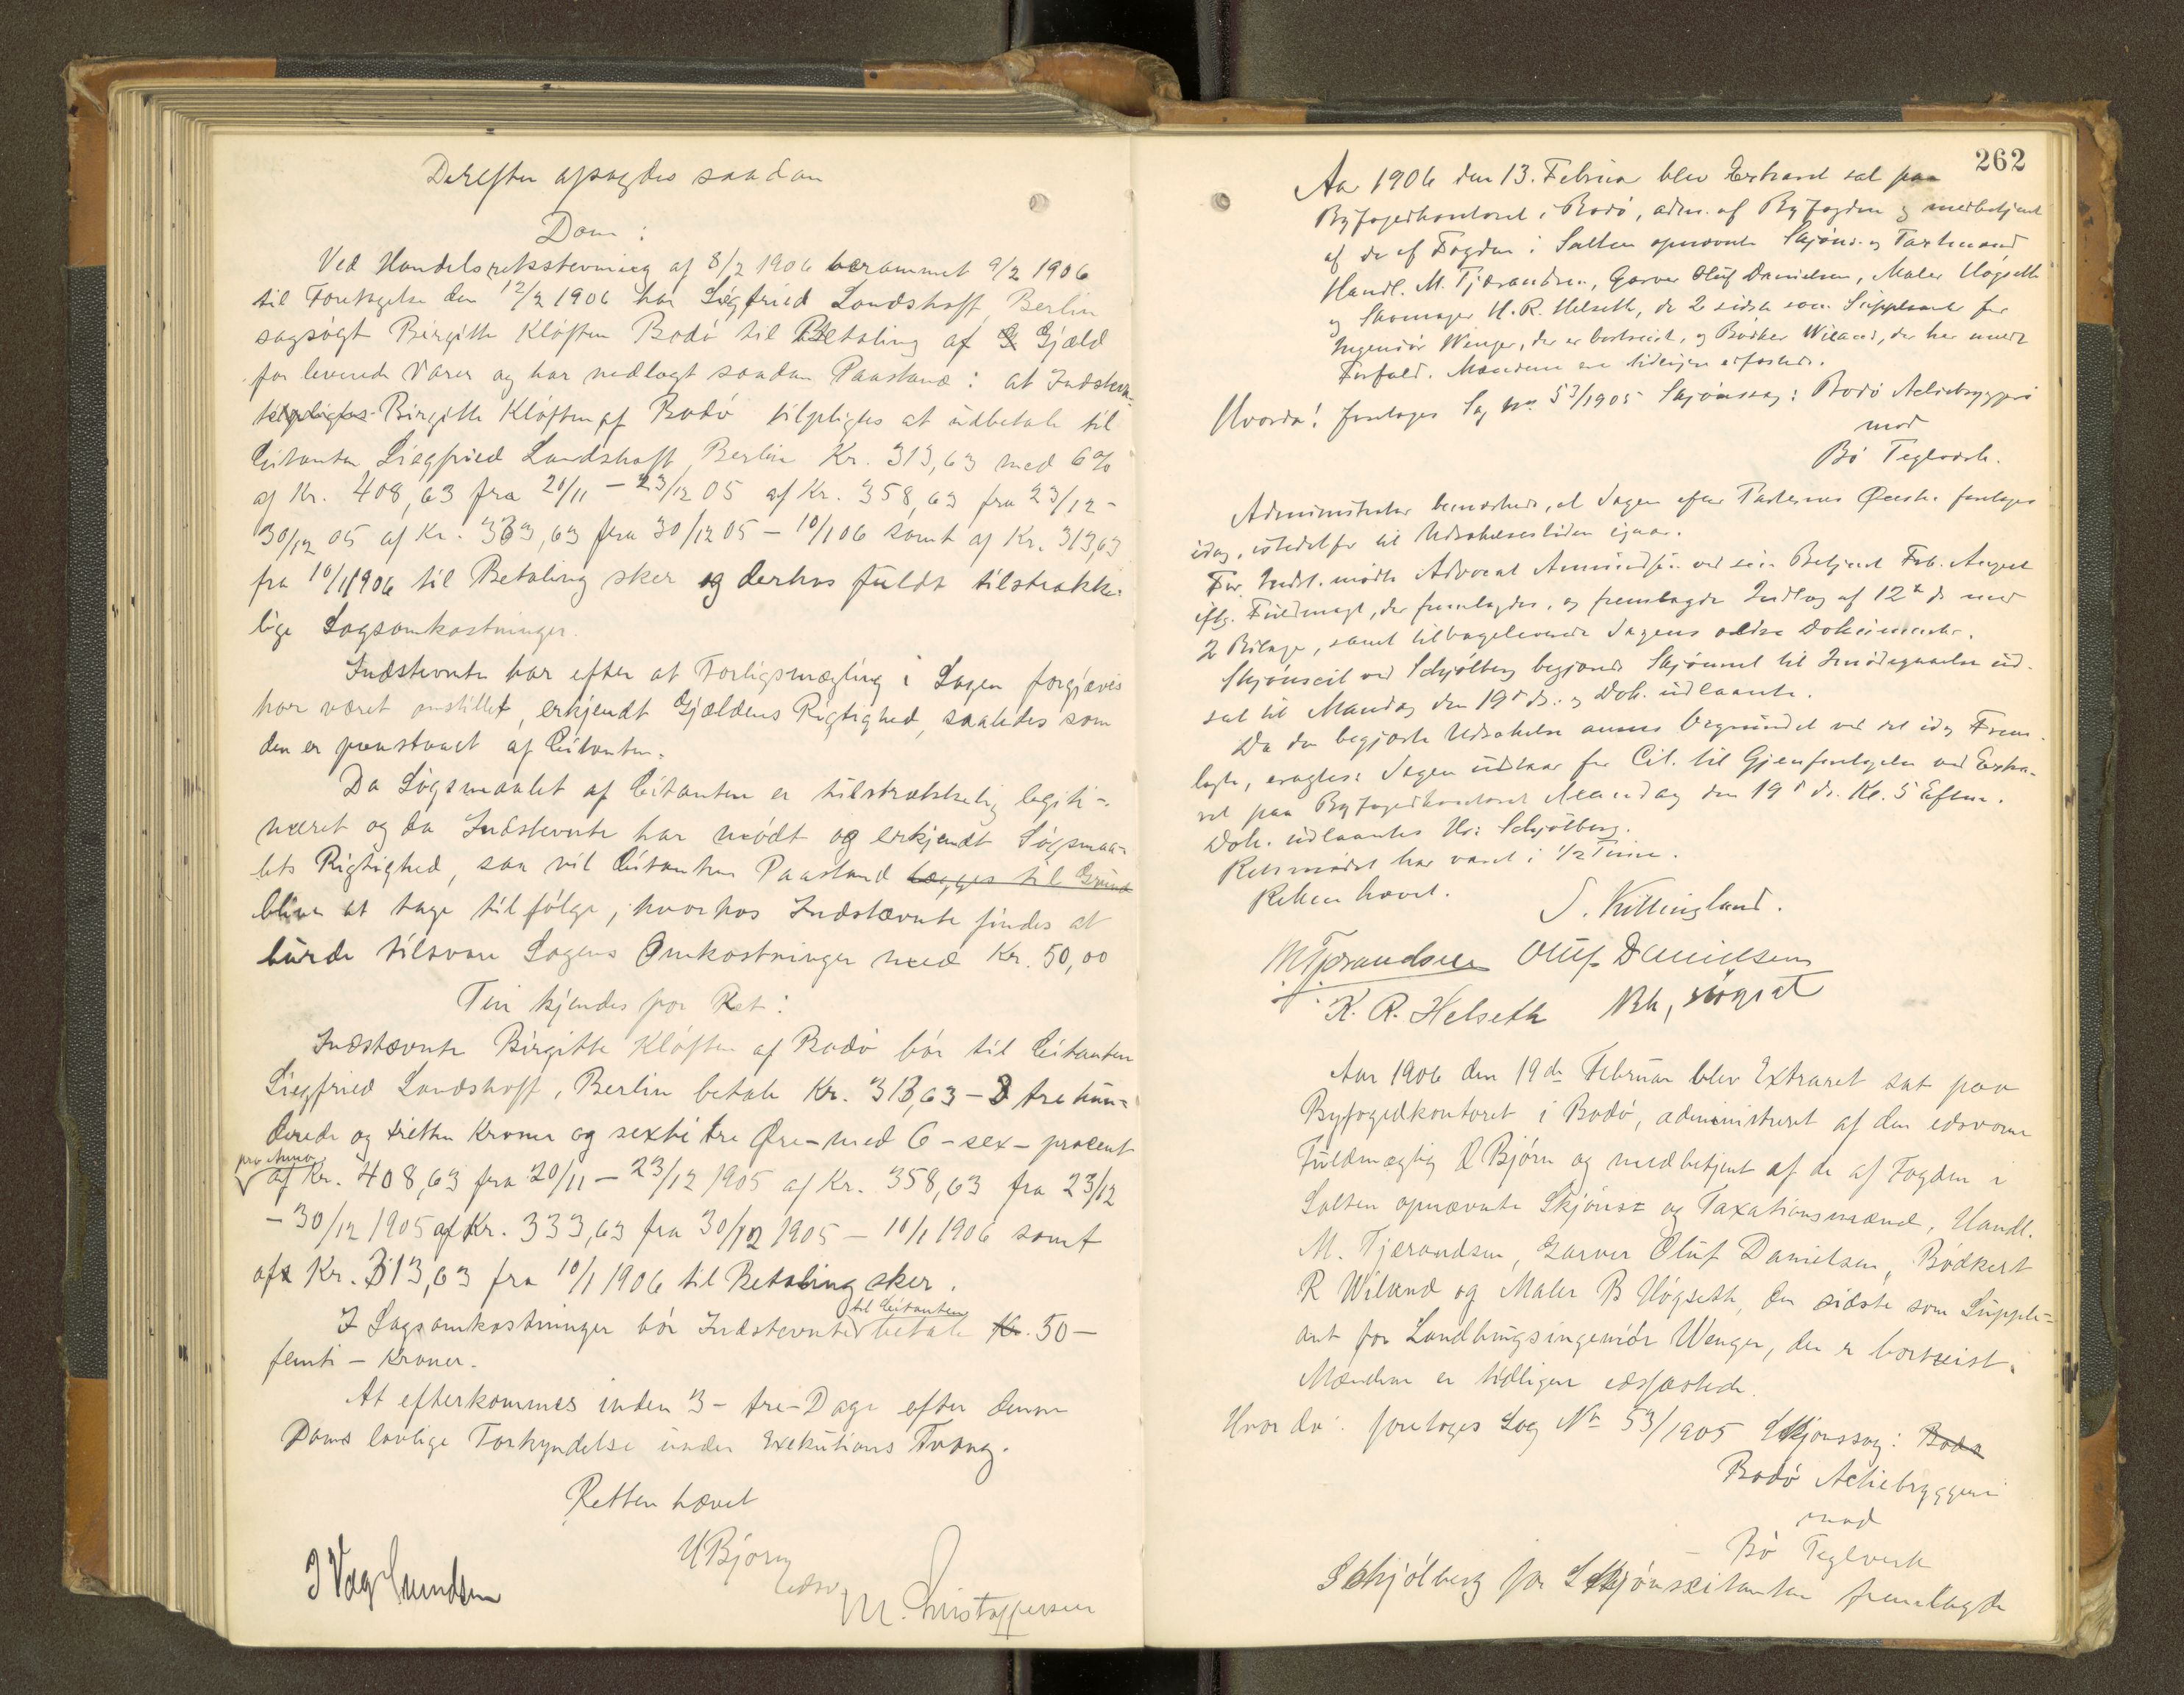 Derefter afsagdes saadan
Dom:
Ved Handelsretsstevning af 8/2 1906 berammet 9/2 1906
til Foretagelse den 12/2 1906 har Siegfried Landshoff, Berlin
sagsøgt Birgitte Kløften Bodø til Betaling af Gjæld
for leverede Varer og har nedlagt saadan Paastand: at Indstevn-
tilpligtes Birgitte Kløften af Bodø tilpligtes at udbetale til
Citanten Siegfried Landshoff Berlin Kr. 313,63 med 6%
af Kr. 408,63 fra 20/11 - 23/12 05 af Kr. 358,63 fra 23/12 -
30/12 05 af Kr. 333,63 fra 30/12 05 - 10/1 06 samt af Kr. 313,63
fra 10/1 1906 til Betaling sker og derhos fuldt tilstrække-
lige Sagsomkostninger.
Indstevnte har efter at Forligsmægling i Sagen forgjæves
har været anstillet, erkjendt Gjældens Rigtighed, saaledes som
den er paastaaet af Citanten.
Da Søgsmaalet af Citanten er tilstrækkelig legiti-
meret og da Indstevnte har mødt og erkjendt Søgsmaa-
lets Rigtighed, saa vil Citantens Paastand lægges til Grund
blive at tage tilfølge, hvorhos Indstævnte findes at
burde tilsvare Sagens Omkostninger med Kr. 50,00
Thi kjendes for Ret:
Indstævnte Birgitte Kløften af Bodø bør til Citanten
Siegfried Landshoff, Berlin betale Kr. 313,63 - tre hun-
drede og tretten Kroner og sexti tre Øre - med 6 - sex - procent
pro Anno
af Kr. 408,63 fra 20/11 - 23/12 1905 af Kr. 358,63 fra 23/12
- 30/12 1905 af Kr. 333,63 fra 30/12 1905 - 10/1 1906 samt
af Kr. 313,63 fra 10/1 1906 til Betaling sker.
til Citanten
I Sagsomkostninger bør Indstevnte betale Kr. 50 -
femti - Kroner.
At efterkommes inden 3 - tre - Dage efter denne
Doms lovlige Forkyndelse under Exekutions Tvang.
Retten hævet
U Bjørn
edsv.
J Vaag Amundsen
M. Kristoffersen
262
Aar 1906 den 13. Februar blev Extraret sat paa
Byfogedkontoret i Bodø, adm. af Byfogden og medbetjent
af de af Fogden i Salten opnævnte Skjøns- og Taxtmænd
Handl. M. Tjærandsen, Garver Oluf Danielsen, Maler Høgseth
og Skomager K. R. Helseth, de 2 sidste som Suppleant for
Ingeniør Wenger, der er bortreist, og Bødker Wiland, der har meldt
Forfald. Mændene ere tidligere edfæstede.
Hvorda! foretoges Sag No. 53/1905 Skjønssag: Bodø Actiebryggeri
mod
Bø Teglværk.
Administrator bemærkede, at Sagen efter Parternes Ønske foretoges
idag, istedetfor til Udsættelsestiden igaar.
For Indst. mødte Advocat Amundsen ved sin Betjent Frk. August
iflg. Fuldmagt, der fremlagdes, og fremlagde Indlæg af 12te ds med
2 Bilage, samt tilbageleverede Sagens ældre Dokumenter.
Skjønscit ved Schjølberg begjærede Skjønnet til Imødegaaelse ud-
sat til Mandag den 19de ds. og Dok. udlaante.
Da den begjærte Udsættelse ansees begrundet ved det idag Frem-
lagte, eragtes: Sagen udstaar for Cit. til Gjenforetagelse ved Extra-
ret paa Byfogedkontoret Mandag den 19de ds. Kl. 5 Efterm.
Dok. udlaantes Hr. Schjølberg.
Retsmødet har varet i 1/2 Time.
Retten hævet.
S. Killingland.
M Tjærandsen Oluf Danielsen
K. R. Helseth Bh. Høgset
Aar 1906 den 19de Februar blev Extraret sat paa
Byfogedkontoret i Bodø, administreret af den edsvorne
Fuldmægtig U Bjørn og medbetjent af de af Fogden i
Salten opnævnte Skjøns- og Taxationsmænd, Handl.
M. Tjærandsen, Garver Oluf Danielsen, Bødkert
R Wiland og Maler B Høgseth, den sidste som Supple-
ant for Landbrugsingeniør Wenger, der er bortreist.
Mændene er tidligere edsfæstede.
Hvorda: foretoges Sag No 53/1905 Skjønssag: Bodø
Bodø Actiebryggeri
mod
- Bø Teglverk
Schjølberg for Skjønscitanten fremlagde